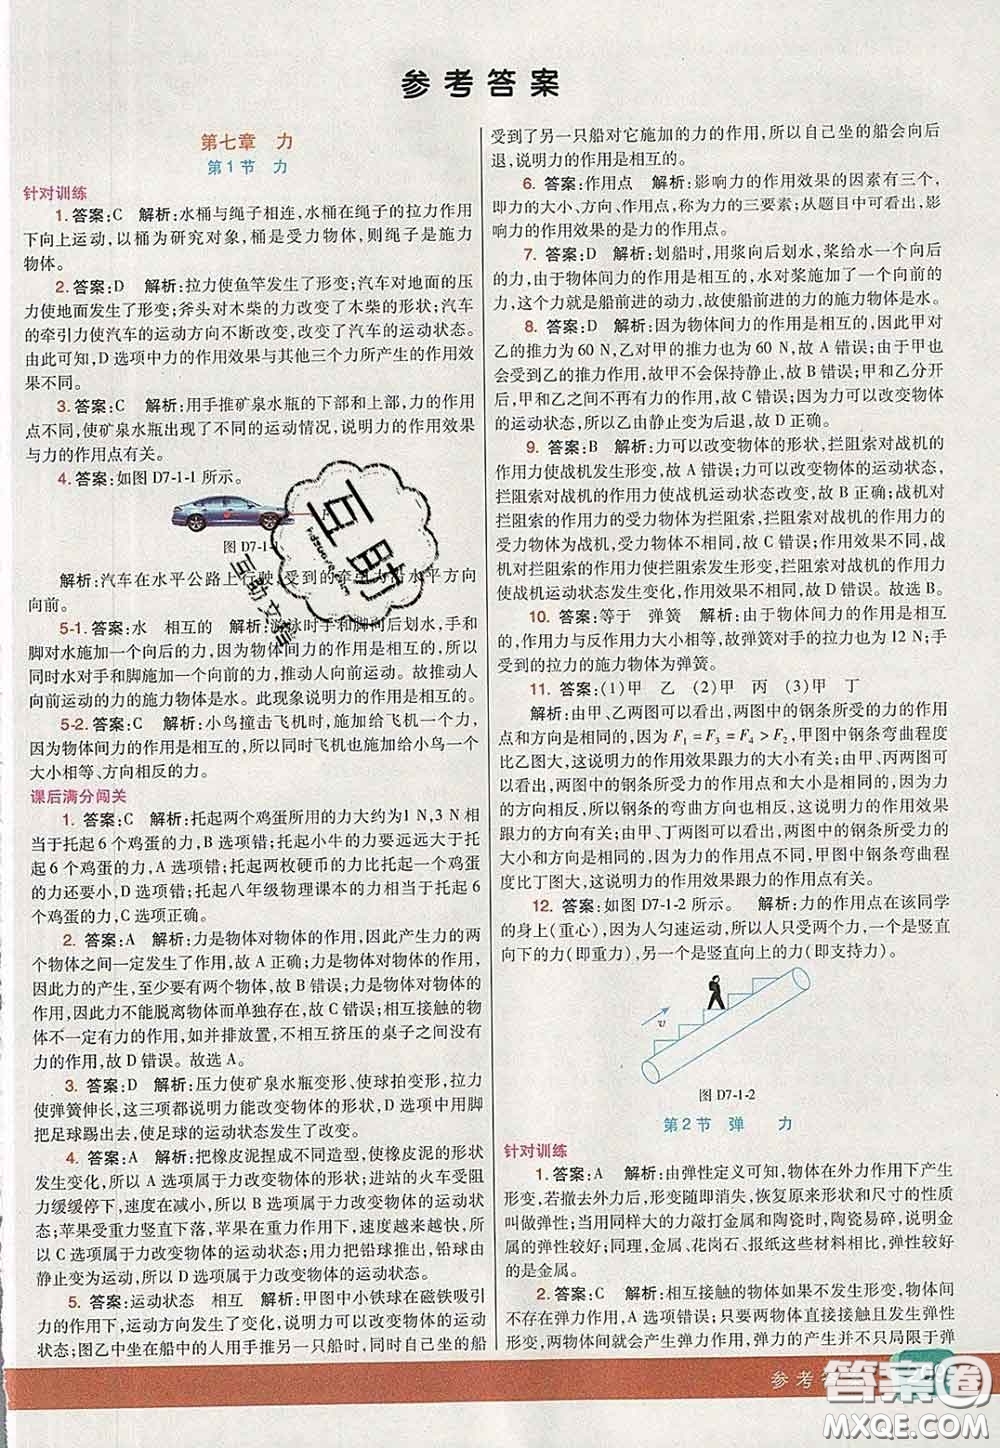 参考答案
第七章 力
第1节 力
针对训练
1. 答案:C 解析:水桶与绳子相连,水桶在绳子的拉力作用
下向上运动,以桶为研究对象,桶是受力物体,则绳子是施力
物体。
2. 答案:D 解析:拉力使鱼竿发生了形变;汽车对地面的压
力使地面发生了形变;斧头对木柴的力改变了木柴的形状;汽车
的牵引力使汽车的运动方向不断改变,改变了汽车的运动状态。
由此可知,D选项中力的作用效果与其他三个力所产生的作用效
果不同。
3. 答案:C 解析:用手推矿泉水瓶的下部和上部,力的作用
点不同,使矿泉水瓶出现了不同的运动情况,说明力的作用效果
与力的作用点有关。
4. 答案:如图 D7-1-1 所示。
图 D7-1-1
解析:汽车在水平公路上行驶,受到的牵引力沿水平方向
向前。
5-1. 答案:水 相互的 解析:游泳时手和脚向后划水,手和
脚对水施加一个向后的力,因为物体间力的作用是相互的,所以
同时水对手和脚施加一个向前的力,推动人向前运动。故推动人
向前运动的力的施力物体是水。此现象说明力的作用是相互的。
5-2. 答案:C 解析:小鸟撞击飞机时,施加给飞机一个力,
因为物体间力的作用是相互的,所以同时飞机也对小鸟施加一个
大小相等、方向相反的力。
课后满分闯关
1. 答案:C 解析:托起两个鸡蛋所用的力大约为1 N,3 N相
当于托起6个鸡蛋的力,B选项错;托起小牛的力要远远大于托
起6个鸡蛋的力,A选项错;托起两枚硬币的力比托起一个鸡蛋
的力还要小,D选项错;托起八年级物理课本的力,相当于托起6
个鸡蛋的力,C选项正确。
2. 答案:A 解析:力是物体对物体的作用,因此产生力的两
个物体之间一定发生了作用,故A正确;力是物体对物体的作用,
因此力的产生,至少要有两个物体,故B错误;力是物体对物体的
作用,因此力不能脱离物体而单独存在,故C错误;相互接触的物
体不一定有力的作用,如并排放置,不相互挤压的桌子之间没有
力的作用,故D错误。故选A。
3. 答案:D 解析:压力使矿泉水瓶变形、使球拍变形,拉力
使弹簧伸长,这三项都说明力能改变物体的形状,D选项中运动员
把足球踢出去,使足球的运动状态发生了改变。
4. 答案:A 解析:把橡皮泥捏成不同造型,使橡皮泥的形状
发生变化,所以A选项属于力改变物体的形状;进站的火车受阻
力缓缓停下,速度在减小,所以B选项属于力改变物体的运动状
态;苹果受重力竖直下落,苹果在重力作用下,速度越来越快,所
以C选项属于力改变物体的运动状态;用力把铅球推出,铅球由
静止变为运动,所以D选项属于力改变物体的运动状态。
5. 答案:运动状态 相互 解析:甲图中小铁球在磁铁吸引
力的作用下,运动方向发生了变化,说明力能改变物体的运动状
态;图乙中坐在船中的人用手推另一只船时,同时自己坐的船
受到了另一只船对它施加的力的作用,所以自己坐的船会向后
退,说明力的作用是相互的。
6. 答案:作用点 解析:影响力的作用效果的因素有三个,
即力的大小、方向、作用点,称为力的三要素;从题目中可看出,影
响力的作用效果的是力的作用点。
7. 答案:D 解析:划船时,用桨向后划水,桨给水一个向后
的力,由于物体间力的作用是相互的,水对桨施加了一个向前的
力,这个力就是船前进的动力。故使船前进的力的施力物体是水。
8. 答案:D 解析:因为物体间力的作用是相互的,因此甲对
乙的推力为60 N,乙对甲的推力也为60 N,故A错误;甲、乙都会
受到力的作用,故甲不会保持静止,故B错误;甲和乙分开
后,甲和乙之间不再有力的作用,故C错误;因为力可以改变物体
的运动状态,所以乙由静止变为后退,故D正确。
9. 答案:B 解析:力可以改变物体的形状,拦阻索对战机的
作用力使战机发生形变,故A错误;力可以改变物体的运动状态,
拦阻索对战机的作用力使战机运动状态改变,故B正确;战机对
拦阻索的作用力的受力物体为拦阻索,故C错误;因为力可以使
物体发生形变,因此战机对拦阻索的作用力使拦阻索发生形变,战机
运动状态发生变化,作用力会发生变化,故D错误。故选B。
10. 答案:等于 弹簧 解析:由于物体间力的作用是相互
的,作用力与反作用力大小相等,故弹簧对手的拉力也为12 N;手
受到的拉力的施力物体为弹簧。
11. 答案:(1)甲 乙 (2)甲 丙 (3)甲 丁
解析:由甲、乙两图可以看出,两图中的钢条所受力的作用
点和方向是相同的,因为F₁=F₃=F₄>F₂,甲图中钢条弯曲程度
比乙图大,这说明力的作用效果跟力的大小有关;由甲、丙两图
可以看出,两图中的钢条所受力的作用点和大小是相同的,但力
的方向不同,所以钢条的弯曲方向也相反,这说明力的作用效果
跟力的方向有关;由甲、丁两图可以看出,两图中钢条所受力的大
小和方向是相同的,但力的作用点不同,甲图中钢条弯曲程度
比丁图大,这说明力的作用效果跟力的作用点有关。
12. 答案:如图 D7-1-2 所示。 解析:力的作用点在该同学
的身上(重心),因为人匀速运动,所以人只受两个力,一个是竖直
向下的力(即重力),另一个是竖直向上的力(即支持力)。
v
图 D7-1-2
第2节 弹 力
针对训练
1. 答案:A 解析:由弹性定义可知,物体在外力作用下产生
形变,若撤去外力,形变随即消失,恢复原来形状和尺寸的性质
叫做弹性;当用同样大的力敲打金属和陶瓷时,陶瓷易碎,说明
金属的弹性较好;同理,金属、花岗石、报纸这些材料相比,弹性较好的
是金属。
2. 答案:C 解析:相互接触的物体如果不发生形变,物体间
不存在弹力作用,A选项错误;只要两物体直接接触且发生弹性
形变,两物体间就会产生弹力作用,弹力的产生并不只局限于弹
参考答
互助
互动文档
答案圈
MXQE.COM